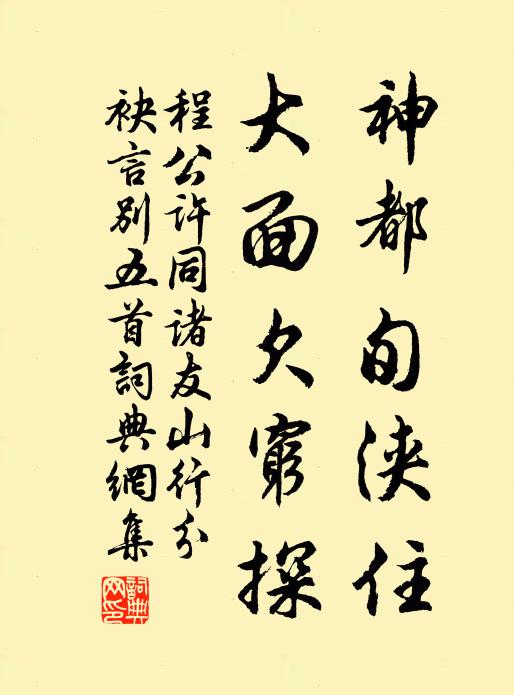 神都旬浹住
大面欠窮探
程公许同諸友山行分
袂言別五首詞典網集
詞典網印